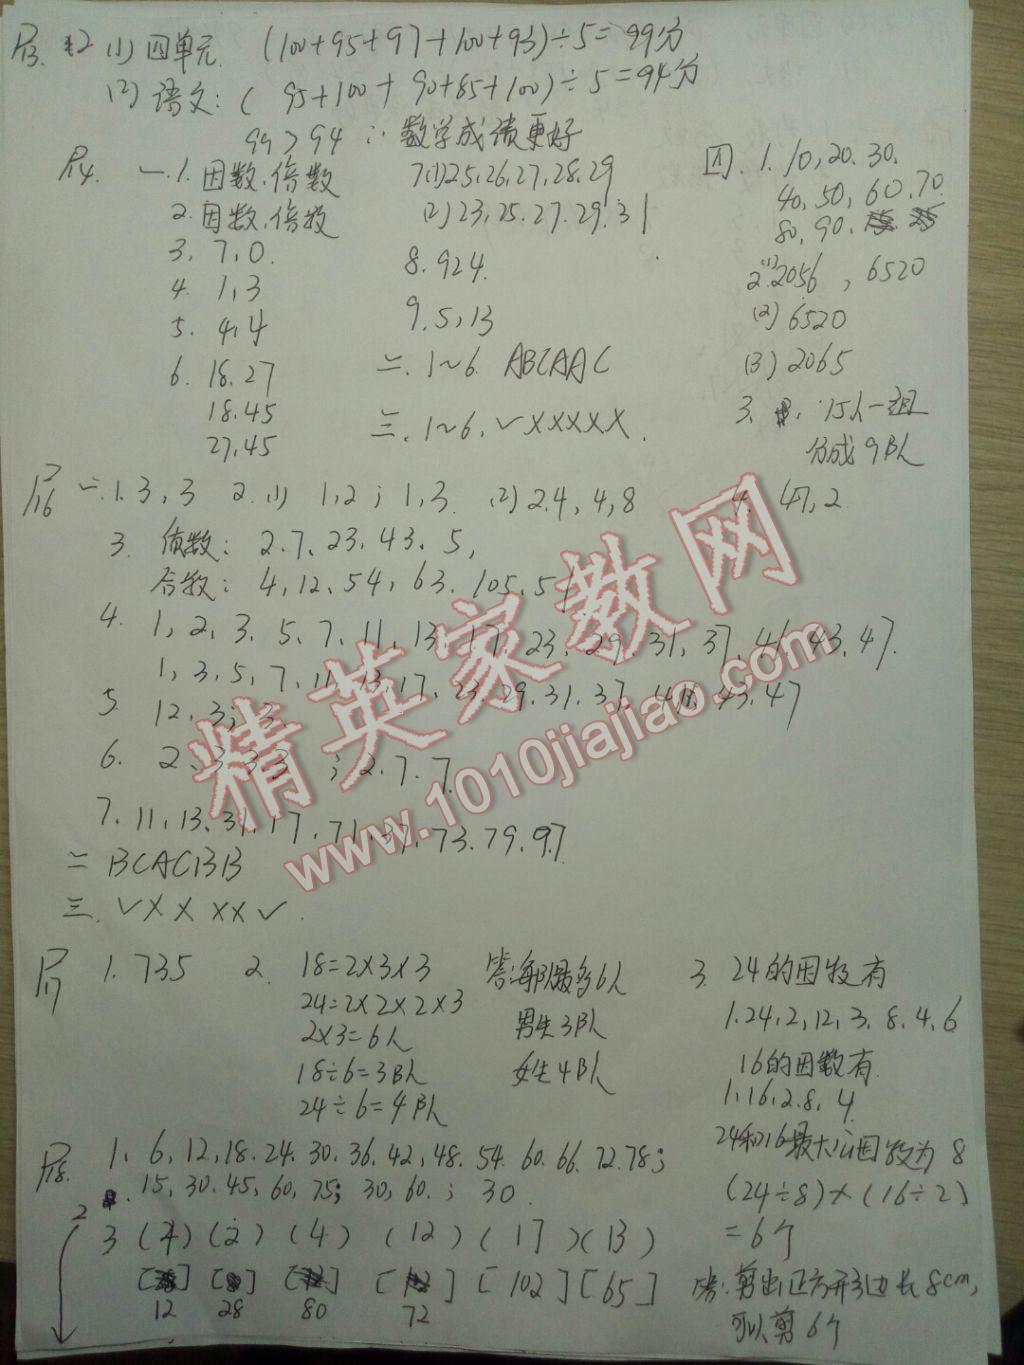 P13. 2 (1) 四单元. (100+95+97+100+93)÷5=99分
(2) 语文:( 95+100+90+85+100)÷5=94分
99>94 ∴ 数学成绩更好
P14. 一.1.因数.倍数
2.因数.倍数
3. 7,0.
4. 1,3
5. 4,4
6. 18.27
18.45
27,45
7(1)25,26,27,28,29
(2)23,25.27.29.31
8.924.
9.5,13
二.1~6. ABCAAC
三.1~6.✓XXXXX.
四.1.10,20.30.
40,50,60.70
80,90.
2.(1)2056,6520
(2)6520
(3)2065
3. 15人一组
分成9队
P16 一.1.3,3 2.(1) 1,2;1,3. (2)2.4,4,8
3. 质数: 2.7、23.43.5,
合数: 4,12.54,63.105.51
4. 1,2,3.5,7,11,13,17,23,29,31,37,41,43,47.
1,3,5,7,11,13,17,23,29.31.37,41,43,47
5. 12,3;3.
6. 2、3、3、3;2.7.7.
7.11,13、31,17,71,37,73.79.97
二 BCACBB
三.✓XXXX✓.
P17 1.735
2. 18=2X3X3
24=2X2X2X3
2X3=6人
18÷6=3队
24÷6=4队
答:每队最多6人
男生3队
女生4队
3. 24的因数有
1.24,2,12,3,8,4,6
16的因数有.
1,16,2.8,4.
24和16最大公因数为8
(24÷8)×(16÷2)
=6个
答:剪出正方形边长8cm,
可以剪6个
P18. 1. 6,12,18.24.30.36.42,48.54.60.66.72.78;
15,30.45,60,75;30,60.;30.
2
3 (4)(2)(4)(12)(17)(13)
[ ] [ ] [ ] [ ] [102] [65]
12 28 80 72
精英家教网
www.1010jiajiao.com